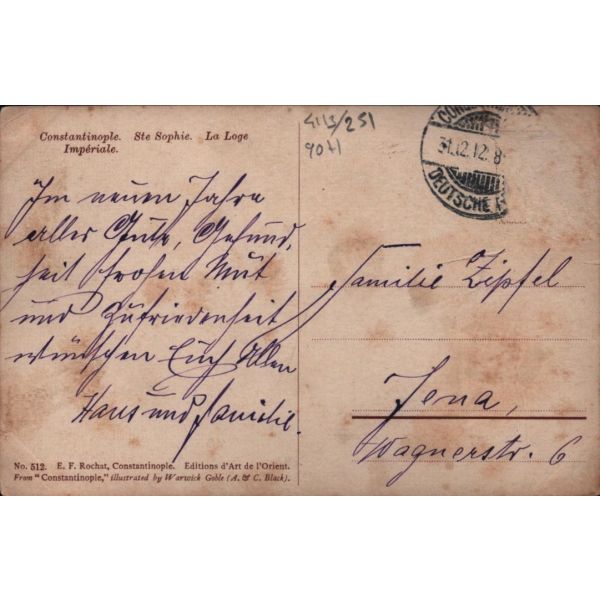 Constantinople. Ste Sophie. La Loge
Impériale.
4113/251
9071
31.12.12.8
DEUTSCHE
Im neuen Jahre
alles Gute, Gesund,
heit frohen Mut
und Zufriedenheit
wünschen Euch Allen
Hans und Familie.
Familie Zipfel
Jena,
Wagnerstr. 6
No. 512. E. F. Rochat, Constantinople. Editions d'Art de l'Orient.
From "Constantinople," illustrated by Warwick Goble (A. & C. Black).